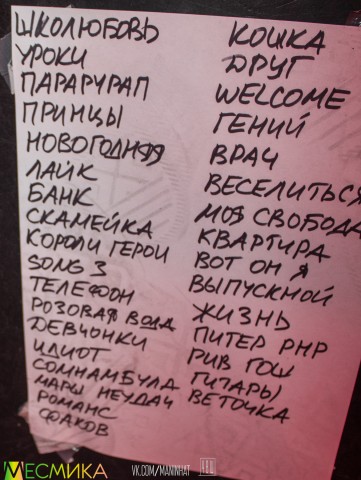 ШКОЛЮБОВЬ
УРОКИ
ПАРАРУРАП
ПРИНЦЫ
НОВОГОДНЯЯ
ЛАЙК
БАНК
СКАМЕЙКА
КОРОЛИ ГЕРОИ
SONG 3
ТЕЛЕФОН
РОЗОВАЯ ВОДА
ДЕВЧОНКИ
ИДИОТ
СОМНАМБУЛА
МАРШ НЕУДАЧ
РОМАНС
ФАКОВ
КОШКА
ДРУГ
WELCOME
ГЕНИЙ
ВРАЧ
ВЕСЕЛИТЬСЯ
МОЯ СВОБОДА
КВАРТИРА
ВОТ ОН Я
ВЫПУСКНОЙ
ЖИЗНЬ
ПИТЕР РНР
РИВ ГОШ
ГИТАРЫ
ВЕТОЧКА
МЕСМИКА
VK.COM/MANINHAT